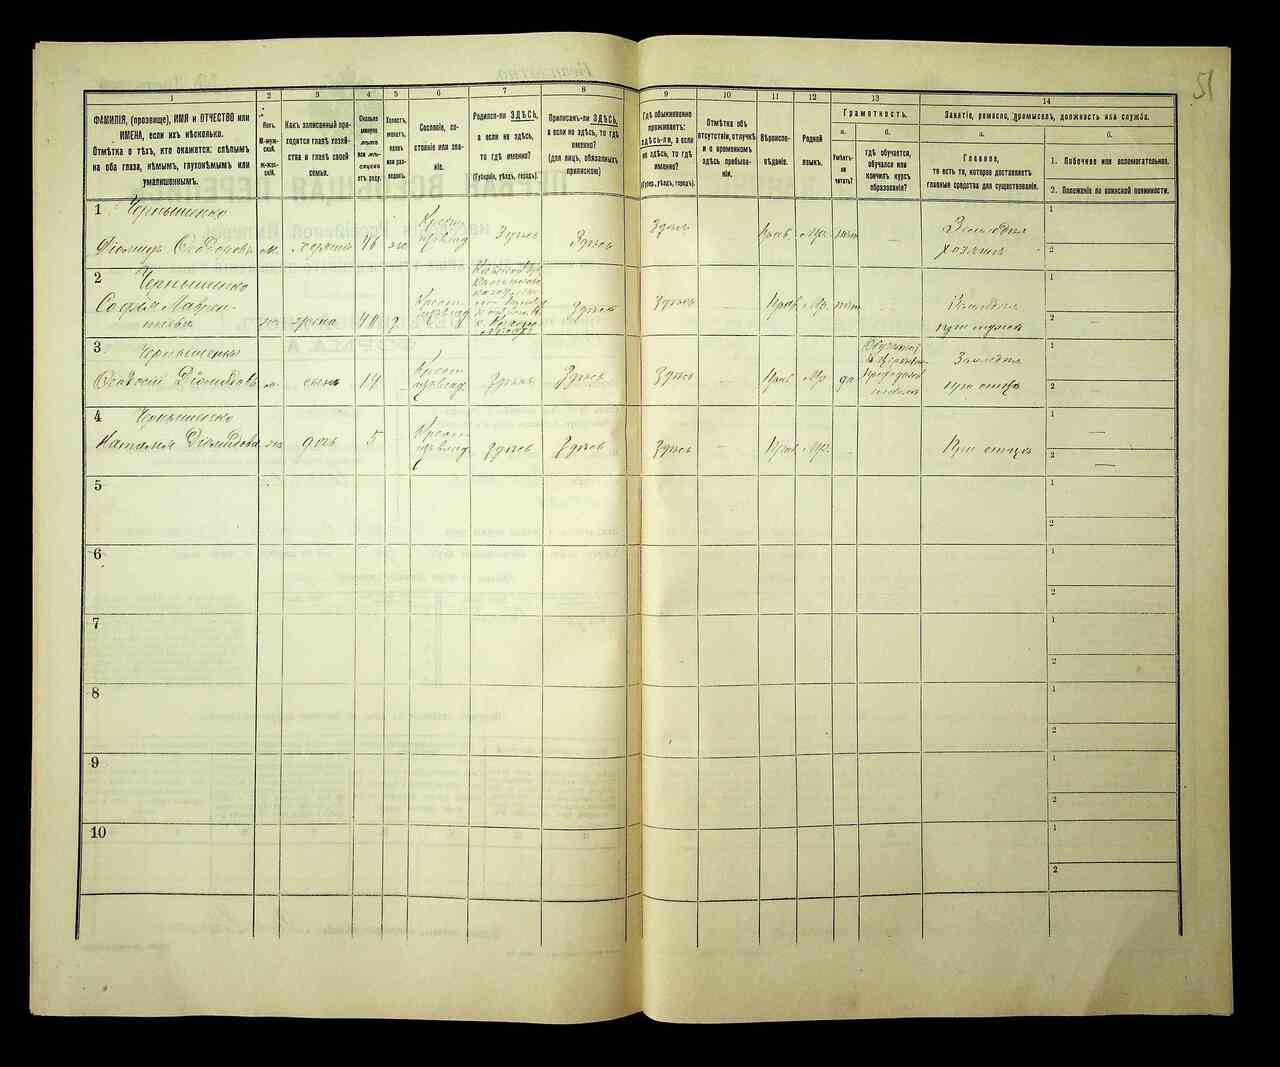 51
1
2
3
4
5
6
7
8
9
10
11
12
13
14
ФАМИЛІЯ, (прозвище), ИМЯ и ОТЧЕСТВО или
ИМЕНА, если ихъ нѣсколько.
Отмѣтка о тѣхъ, кто окажется: слѣпымъ
на оба глаза, нѣмымъ, глухонѣмымъ или
умалишеннымъ.
Полъ.
М-муж-
ской.
Ж-жен-
скій.
Какъ записанный при-
ходится главѣ хозяй-
ства и главѣ своей
семьи.
Сколько
минуло
лѣтъ
или мѣ-
сяцевъ
отъ роду.
Холостъ,
женатъ,
вдовъ
или раз-
веденъ.
Сословіе, со-
стояніе или зва-
ніе.
Родился-ли ЗДѢСЬ,
а если не здѣсь,
то гдѣ именно?
(Губернія, уѣздъ, городъ).
Приписанъ-ли ЗДѢСЬ,
а если не здѣсь, то гдѣ
именно?
(для лицъ, обязанныхъ
припискою)
Гдѣ обыкновенно
проживаетъ:
ЗДѢСЬ-ли, а если
не здѣсь, то гдѣ
именно?
(Губер., уѣздъ, городъ).
Отмѣтка объ
отсутствіи, отлучкѣ
и о временномъ
здѣсь пребыва-
ніи.
Вѣроиспо-
вѣданіе.
Родной
языкъ.
Грамотность.
а.
Умѣетъ-
ли
читать?
б.
гдѣ обучается,
обучался или
кончилъ курсъ
образованія?
Занятіе, ремесло, промыселъ, должность или служба.
а.
Главное,
то есть то, которое доставляетъ
главныя средства для существованія.
б.
1. Побочное или вспомогательное.
2. Положеніе по воинской повинности.
1
Чернышенко
Діомидъ Ѳеодоровъ
м.
хозяинъ
46
ж
Крест.
Здѣсь
Здѣсь
Здѣсь
—
Прав.
Мр.
нѣтъ
—
Земледѣл.
хозяинъ
1
2
2
Чернышенко
Софія Лаврен-
тьева
ж
жена
Крест.
Здѣсь
Здѣсь
—
Прав.
Мр.
нѣтъ
Земледѣл.
при мужѣ
1
2
—
3
Чернышенко
Ѳеодосій Діомидовъ
м.
сынъ
14
-
Крест.
Здѣсь
Здѣсь
Здѣсь
—
Прав.
Мр.
да
Земледѣл.
при отцѣ
1
2
—
4
Чернышенко
Наталія Діомидова
ж
дочь
5
-
Крест.
Здѣсь
Здѣсь
Здѣсь
—
Прав.
Мр.
-
При отцѣ
1
—
2
—
5
1
2
6
1
2
7
1
2
8
1
2
9
1
2
10
1
2